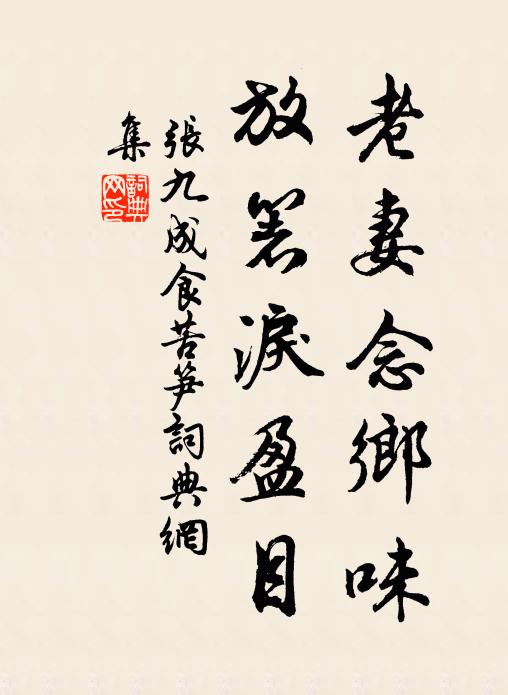 老妻念鄉味
放箸淚盈目
張九成食苦笋詞典網
集
詞典
网印